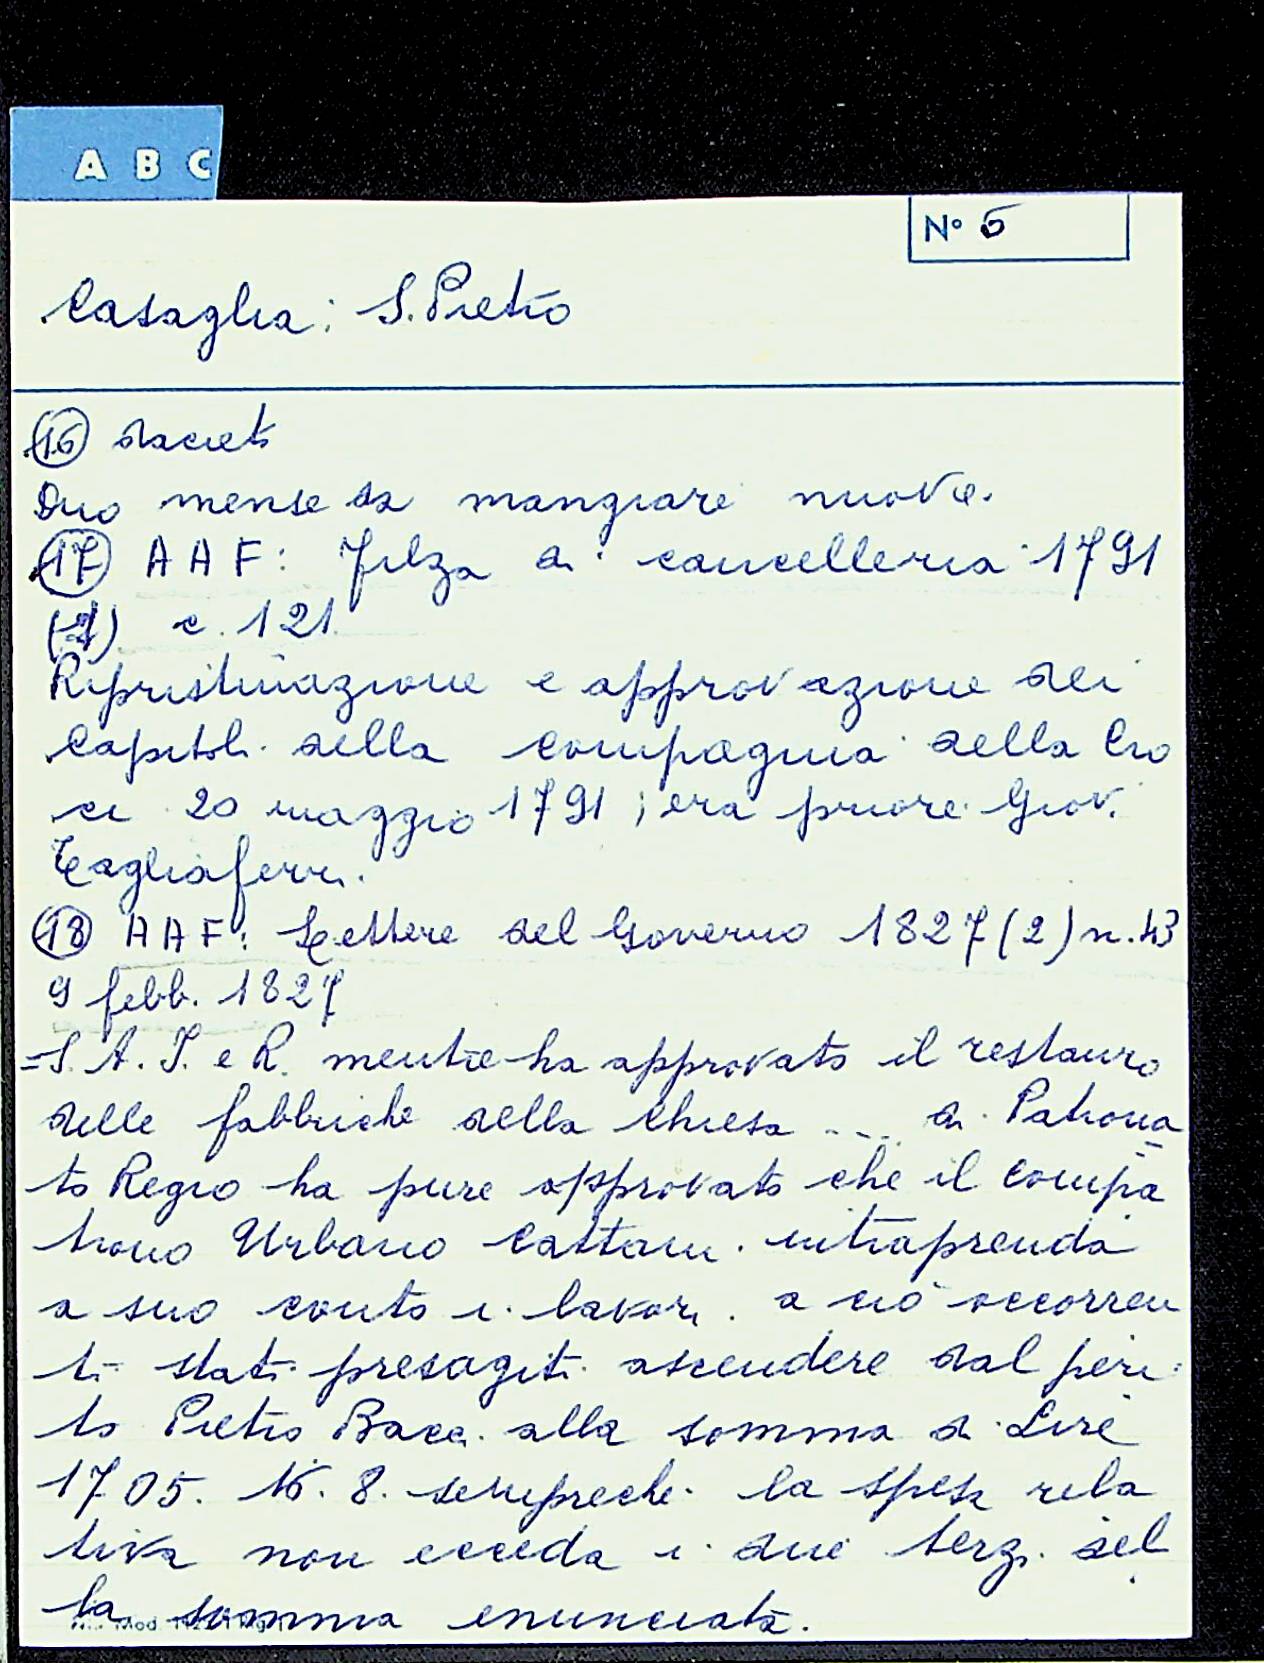 A B C
N° 6
Casaglia: S. Pietro
(16) sacrato
Duo mense da mangiare nuove.
(17) AAF: Filza di cancelleria 1791
c. 121
Ripristinazione e approvazione dei
Capitoli della compagnia della Cro
ce 20 maggio 1791; era priore Giov.
Tagliaferri.
(18) AAF: Lettere del Governo 1827 (2) n. 43
9 febb. 1827
=S. A. I. e R. mentre ha approvato il restauro
delle fabbriche della Chiesa ... di Patrona
to Regio ha pure approvato che il compa
trono Urbano Cattani intraprenda
a suo conto i lavori a ciò occorren
ti stati presagiti ascendere dal peri
to Pietro Bacci alla somma di Lire
1705. 16. 8. sempreché la spesa rela
tiva non ecceda i due terzi del
la somma enunciata.